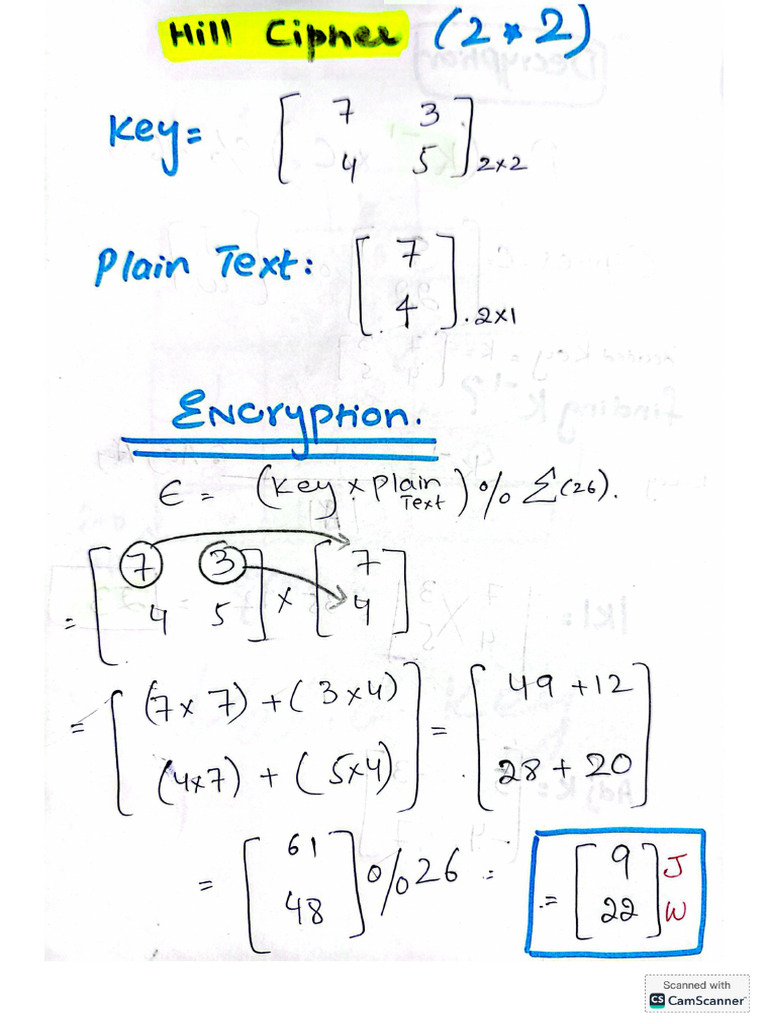 Hill Cipher (2*2)
Key= [ 7 3
4 5 ] 2×2
Plain Text: [ 7
4 ] . 2×1
ENCryption.
E = (Key × Plain Text) % Σ(26).
= [ 7 3
4 5 ] × [ 7
4 ]
= [ (7×7) + (3×4)
(4×7) + (5×4) ] = [ 49 + 12
28 + 20 ]
= [ 61
48 ] %26 = = [ 9 ] J
[ 22 ] W
Scanned with
CS CamScanner